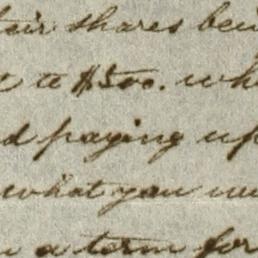 their shares bein
t to $500. whe
d paying up
what you
a term for